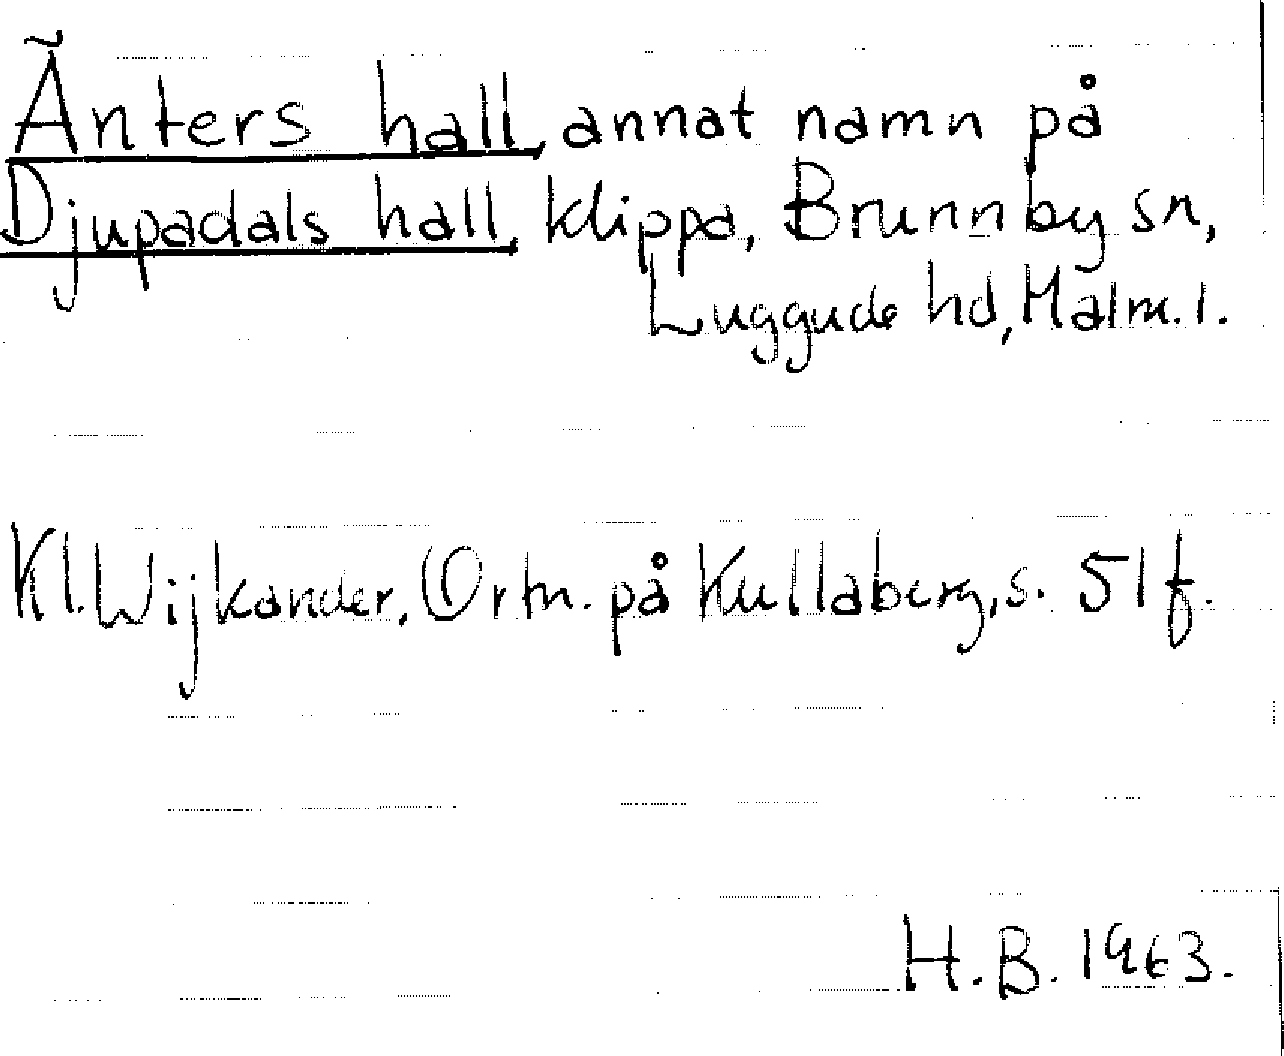 Änters hall, annat namn på
Djupadals hall, klippa, Brunnby sn,
Luggude hd, Malm. l.
Kl. Wijkander, Ortn. på Kullaberg, s. 51 f.
H.B. 1963.